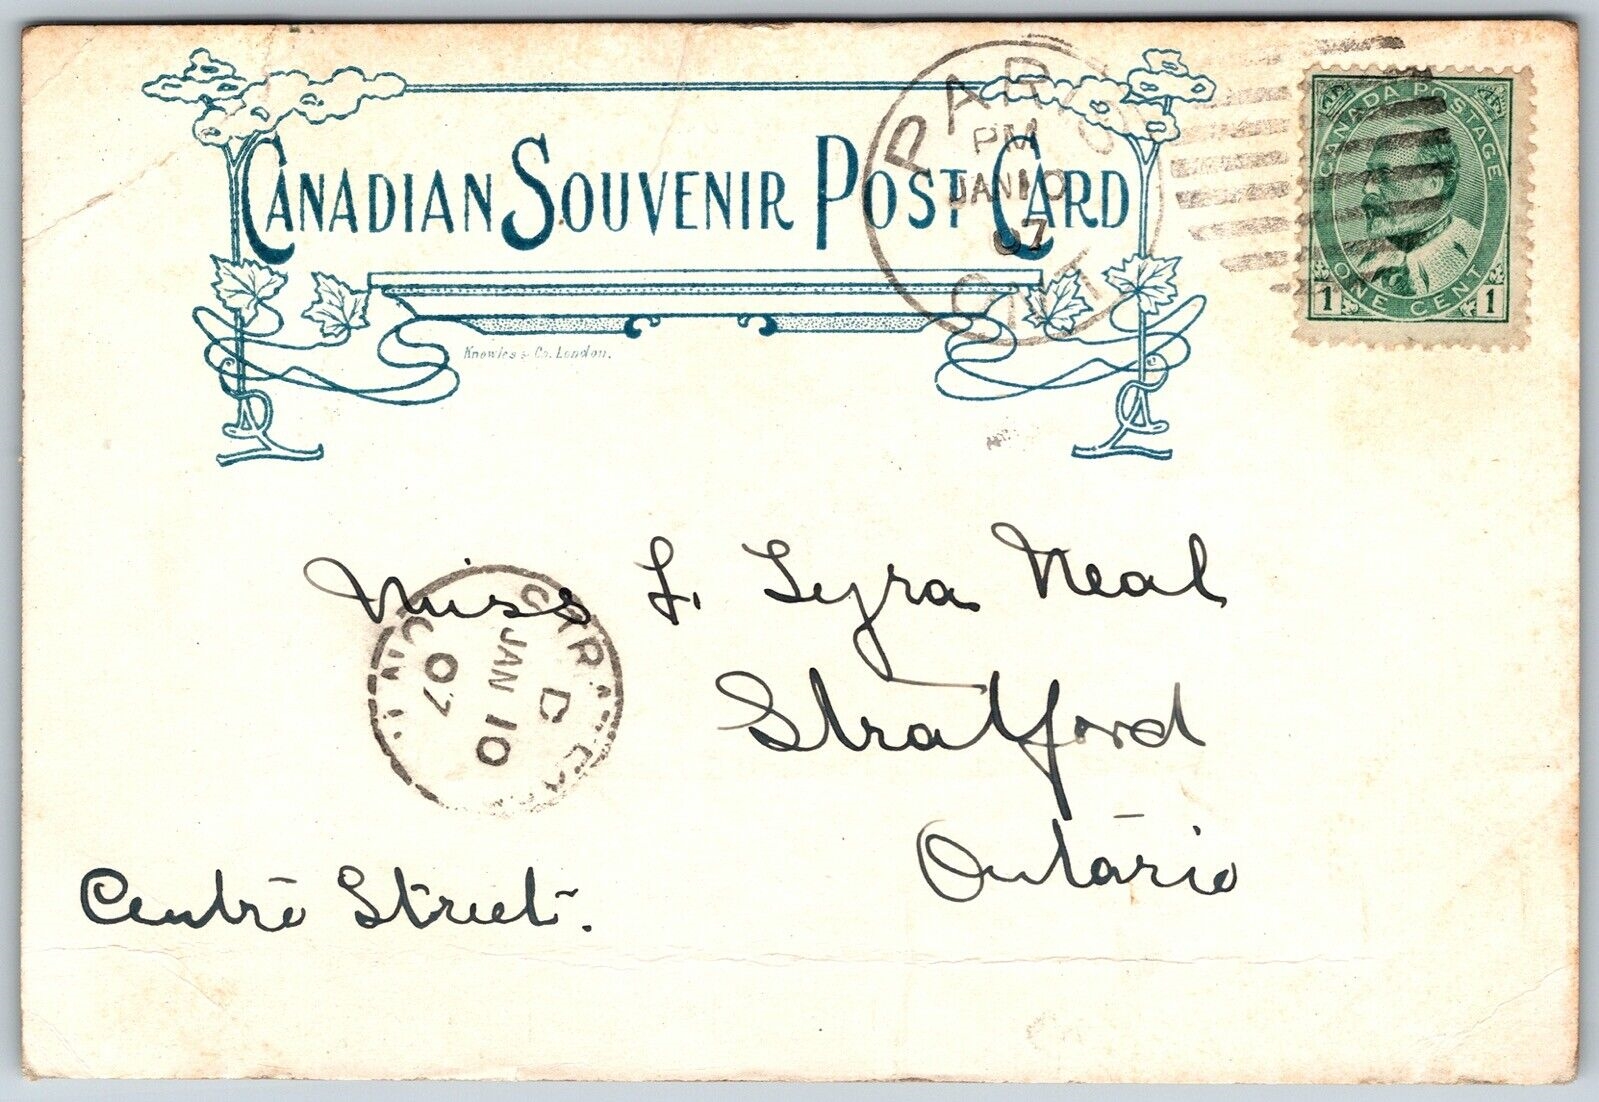 CANADIAN SOUVENIR POST CARD
Knowles & Co. London.
PARIS
PM
JAN 10
07
ONT
CANADA POSTAGE
1 ONE CENT 1
Miss L. Lyra Neal
Stratford
Ontario
Centre Street.
D
JAN 10
07
ONT